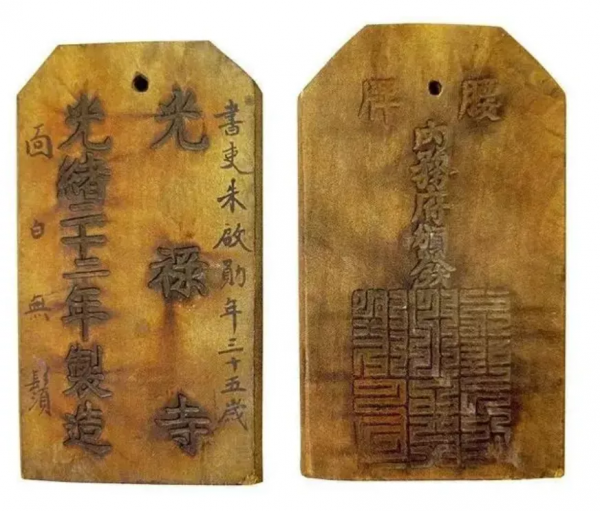 書吏朱啟勛年三十五歲
光祿寺
光緒二十二年製造
面白無鬚
腰牌
內務府頒發